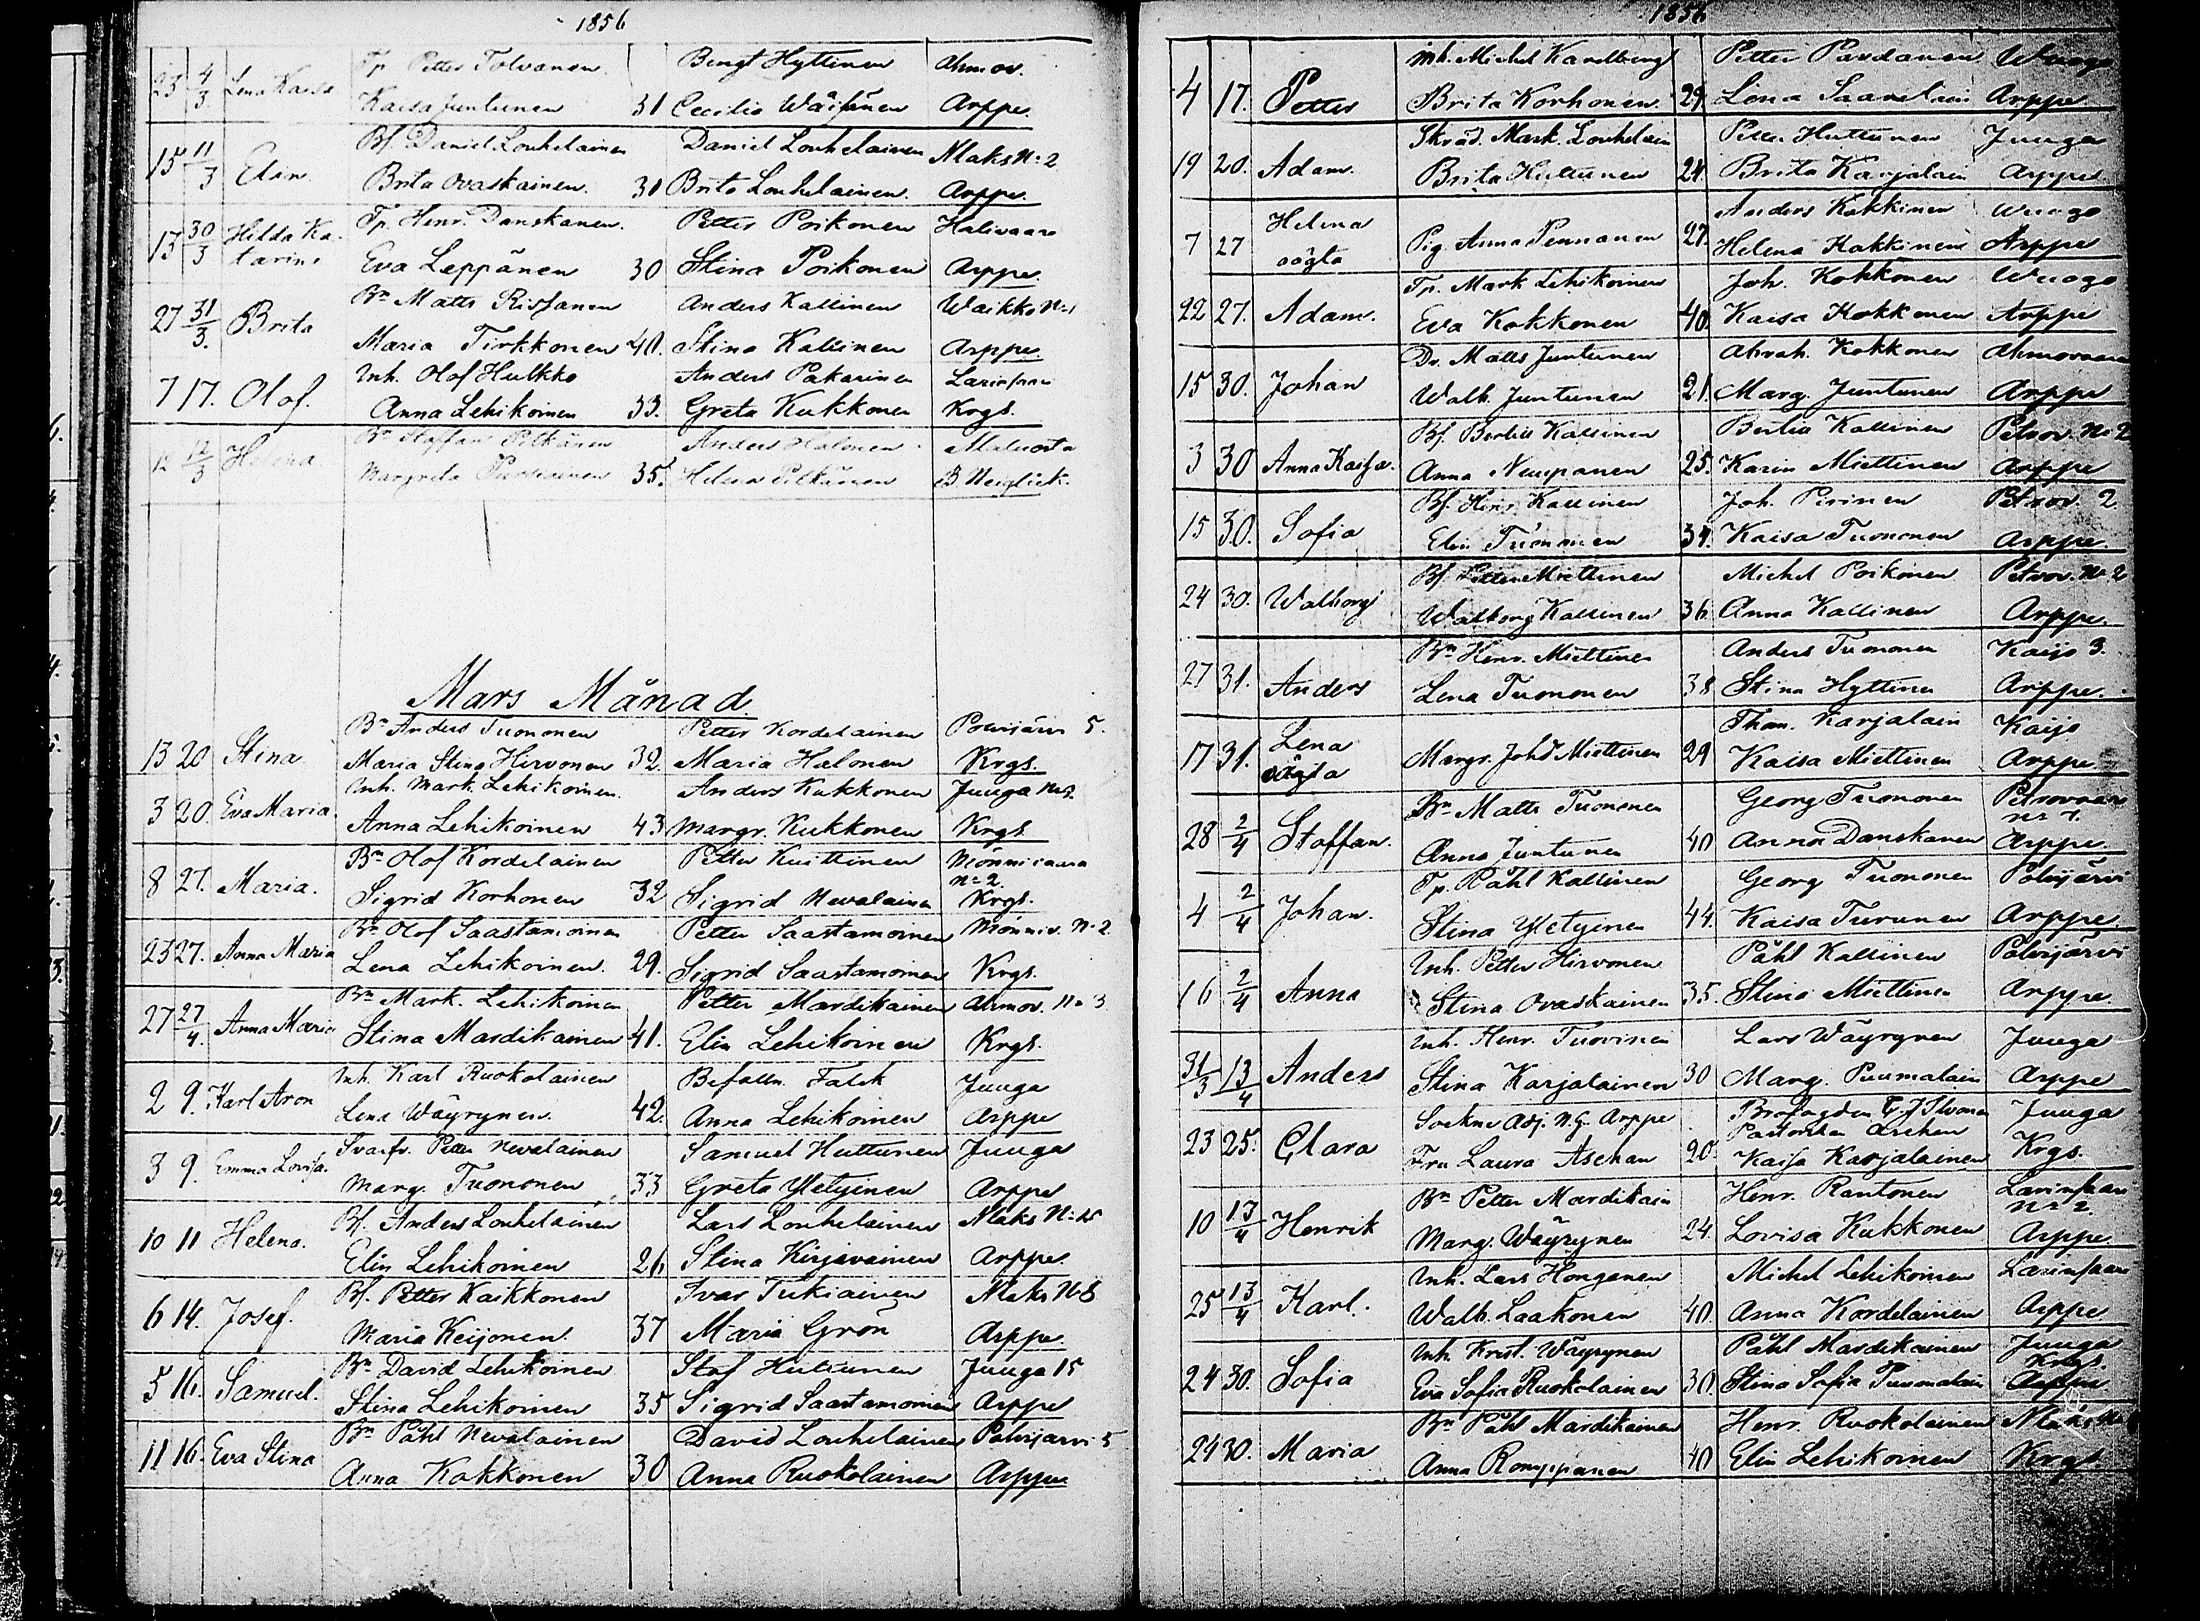 1856
23 4/3 Lena Kaisa Tp. Petter Tolvanen Bengt Hyttinen Ahmov.
Kaisa Juntunen 31 Cecilia Wäisänen Arppe.
15 11/3 Elin. Bf. Daniel Louhelainen Daniel Louhelainen Nlaks N:2
Brita Ovaskainen. 30 Brita Louhelainen. Arppe.
13 30/3 Hilda Ka- Tp. Henr. Danskanen. Petter Poikonen Halivaara
tarina Eva Leppänen 30 Stina Poikonen Arppe.
27 31/3. Brita Bn Matts Rissanen Anders Kallinen Waikko N:1
Maria Tirkkonen 40. Stina Kallinen Arppe.
7 17. Olof. Inh. Olof Hulkko Anders Pakarinen Larinsaari
Anna Lehikoinen 33. Greta Kukkonen Krgs.
12 12/3 Helena Bn Staffan Pitkänen Anders Halonen
Margreta 35. Helena Pitkänen B Neiglick.
Mars Månad.
13 20 Stina Bn Anders Tuononen Petter Kordelainen Polvijärvi 5.
Maria Stina Hirvonen 32. Maria Halonen Krgs.
3 20. Eva Maria. Inh. Mark. Lehikoinen. Anders Kukkonen Juuga N:2.
Anna Lehikoinen 43 Margr. Kukkonen Krgs.
8 27. Maria. Bn Olof Kordelainen Petter Kuittinen Mönnivaara
N:2.
Sigrid Korhonen 32 Sigrid Nevalainen Krgs.
23 27. Anna Maria Bn Olof Saastamoinen Petter Saastamoinen Mönniv. N:2
Lena Lehikoinen. 29. Sigrid Saastamoinen Krgs.
27 27/4. Anna Maria Bn Mark. Lehikoinen Petter Mardikainen Ahmov. No 3
Stina Mardikainen 41. Elin Lehikoinen Krgs.
2 9. Karl Aron Inh. Karl Ruokolainen Befalln. Falck Juuga
Lena Wäyrynen. 42. Anna Lehikoinen Arppe
3 9. Emma Lovisa. Svarfv. Petter Nevalainen Samuel Huttunen Juuga
Marg. Tuononen 33 Greta Yletyinen Arppe
10 11 Helena. Bf. Anders Louhelainen Lars Louhelainen Nlaks N:15
Elin Lehikoinen 26 Stina Kirjavainen Arppe.
6 14. Josef. Bf. Petter Kaikkonen Ivar Tukiainen Nlaks N:8
Maria Keijonen. 37 Maria Grön Arppe.
5 16. Samuel. Bn David Lehikoinen Staf Huttunen Juuga 15
Stina Lehikoinen 35 Sigrid Saastamoinen Arppe
11 16. Eva Stina Bn Påhl Nevalainen David Louhelainen Polvijärvi 5
Anna Kokkonen 30 Anna Ruokolainen Arppe
1856
4 17. Petter Inh. Michel Karelberg Petter Pardanen Wuogo
Brita Korhonen. 29. Lina Saarelain Arppe
19 20. Adam. Skräd. Mark. Louhelain Petter Huttunen Juuga
Brita Huttunen 24. Brita Karjalain Arppe.
7 27 Helena Pig. Anna Pennanen 27. Anders Kokkinen Wuogo
oägta Helena Kokkinen Arppe
22 27. Adam. Tp. Mark Lehikoinen Joh. Kokkonen Wuogo
Eva Kokkonen 40. Kaisa Kokkonen Arppe
15 30. Johan Dr. Matts Juntunen Abrah. Kokkonen Ahmovaara
Walb. Juntunen 21. Marg. Juntunen Arppe
3 30 Anna Kaisa. Bf. Bertill Kallinen Bertil Kallinen Petrov. No 2
Anna Neuvonen 25. Karin Miettinen Arppe
15 30. Sofia Bf. Henr. Kallinen Joh. Pirinen Petrov. 2.
Elin Tuononen 34. Kaisa Tuononen Arppe.
24 30. Walborg Bf. Petter Miettinen Michel Poikonen Petrov. No 2
Walborg Kallinen 36. Anna Kallinen Arppe.
27 31. Anders Bn Henr. Miettinen Anders Tuononen Kaijo 3.
Lena Tuononen 38 Stina Hyttinen Arppe.
17 31. Lena Margr. Johd Miettinen 29 Thom. Karjalain Kaijo
oägta Kaisa Miettinen Arppe
28 2/4 Staffan. Bn Matts Tuononen Georg Tuononen Petrovaara
No 7.
Anna Juntunen 40 Anna Danskanen Arppe.
4 2/4 Johan. Tp. Påhl Kallinen Georg Tuononen Polvijärvi
Stina Yletyinen 44. Kaisa Turunen Arppe.
16 2/4 Anna Inh. Petter Hirvonen Påhl Kallinen Polvijärvi
Stina Ovaskainen 35. Stina Miettinen Arppe.
31/3 13/4 Anders Inh. Henr. Tuovinen Lars Wäyrynen Juuga
Stina Karjalainen 30 Marg. Puumalain Arppe
23 25. Clara Sockne Adj. N.G. Arppe Juuga
Pastorskan Aschan
Fru Laura Aschan 20. Kaisa Karjalainen Krgs.
10 13/4 Henrik Bn Petter Mardikain Henr. Rantonen Larinsaari
N:2.
Marg. Wäyrynen 24. Lovisa Kukkonen Arppe
25 13/4 Karl. Inh. Lars Honganen Michel Lehikoinen Larinsaari
Walb. Laakonen 40. Anna Kordelainen Arppe
24 30. Sofia Inh. Krist. Wäyrynen Påhl Mardikainen Juuga
Krgs.
Eva Sofia Ruokolainen 30. Stina Sofia Puumalain Arppe.
24 30. Maria Bn Påhl Mardikainen Henr. Ruokolainen Nlaks No
Anna Romppanen 40 Elin Lehikoinen Krgs.